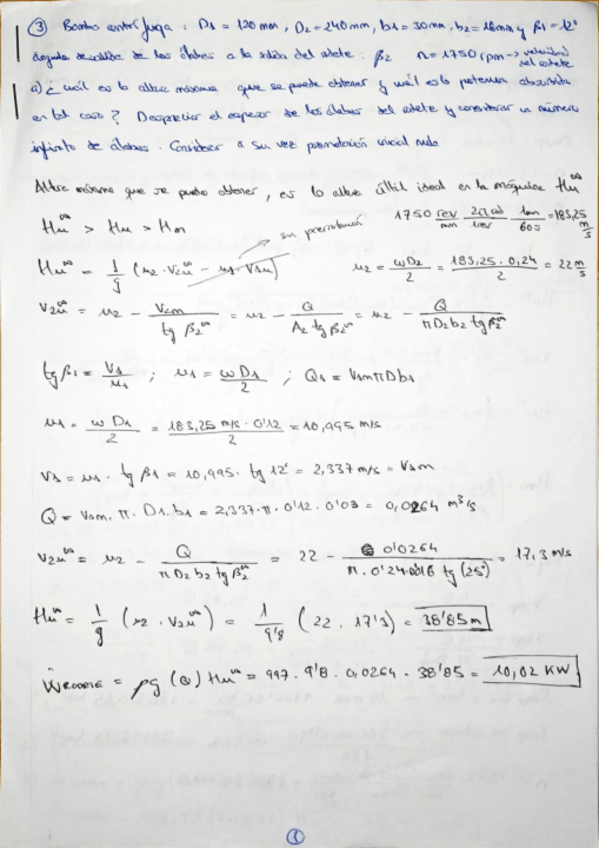 ③ Bomba centrífuga : D1 = 120 mm, D2 = 240 mm, b1 = 30 mm, b2 = 18 mm y β1 = 12°
ángulo de salida de los álabes a la salida del rodete : β2 n = 1750 rpm → velocidad del rodete
a) ¿cuál es la altura máxima que se puede obtener y cuál es la potencia absorbida
en tal caso? Despreciar el espesor de los álabes del rodete y considerar un número
infinito de álabes. Considerar a su vez prerrotación inicial nula
Altura máxima que se puede obtener, es la altura útil ideal en la máquina Hu∞
Hu∞ > Hu > Hm → sin prerrotación 1750 rev/min · 2π rad/1 rev · 1 min/60 s = 183,25 m/s
Hu∞ = 1/g (u2 · V2u∞ − u1 · V1u) u2 = ωD2/2 = 183,25 · 0,24/2 = 22 m/s
V2u∞ = u2 − V2m/tg β2∞ = u2 − Q/A2 tg β2∞ = u2 − Q/πD2 b2 tg β2∞
tg β1 = V1/u1 ; u1 = ωD1/2 ; Q1 = V1m π D b1
u1 = ωD1/2 = 183,25 m/s · 0'12/2 = 10,995 m/s
V1 = u1 · tg β1 = 10,995 · tg 12° = 2,337 m/s = V1m
Q = V1m · π · D1 · b1 = 2,337 · π · 0'12 · 0'03 = 0,0264 m³/s
V2u∞ = u2 − Q/π D2 b2 tg β2∞ = 22 − 0'0264/π · 0'24 · 0'018 tg (25°) = 17,3 m/s
Hu∞ = 1/g (u2 · V2u∞) = 1/9'8 (22 · 17'3) = 38'85 m
Ẇ = ρg (Q) Hu∞ = 997 · 9'8 · 0,0264 · 38'85 = 10,02 KW
①